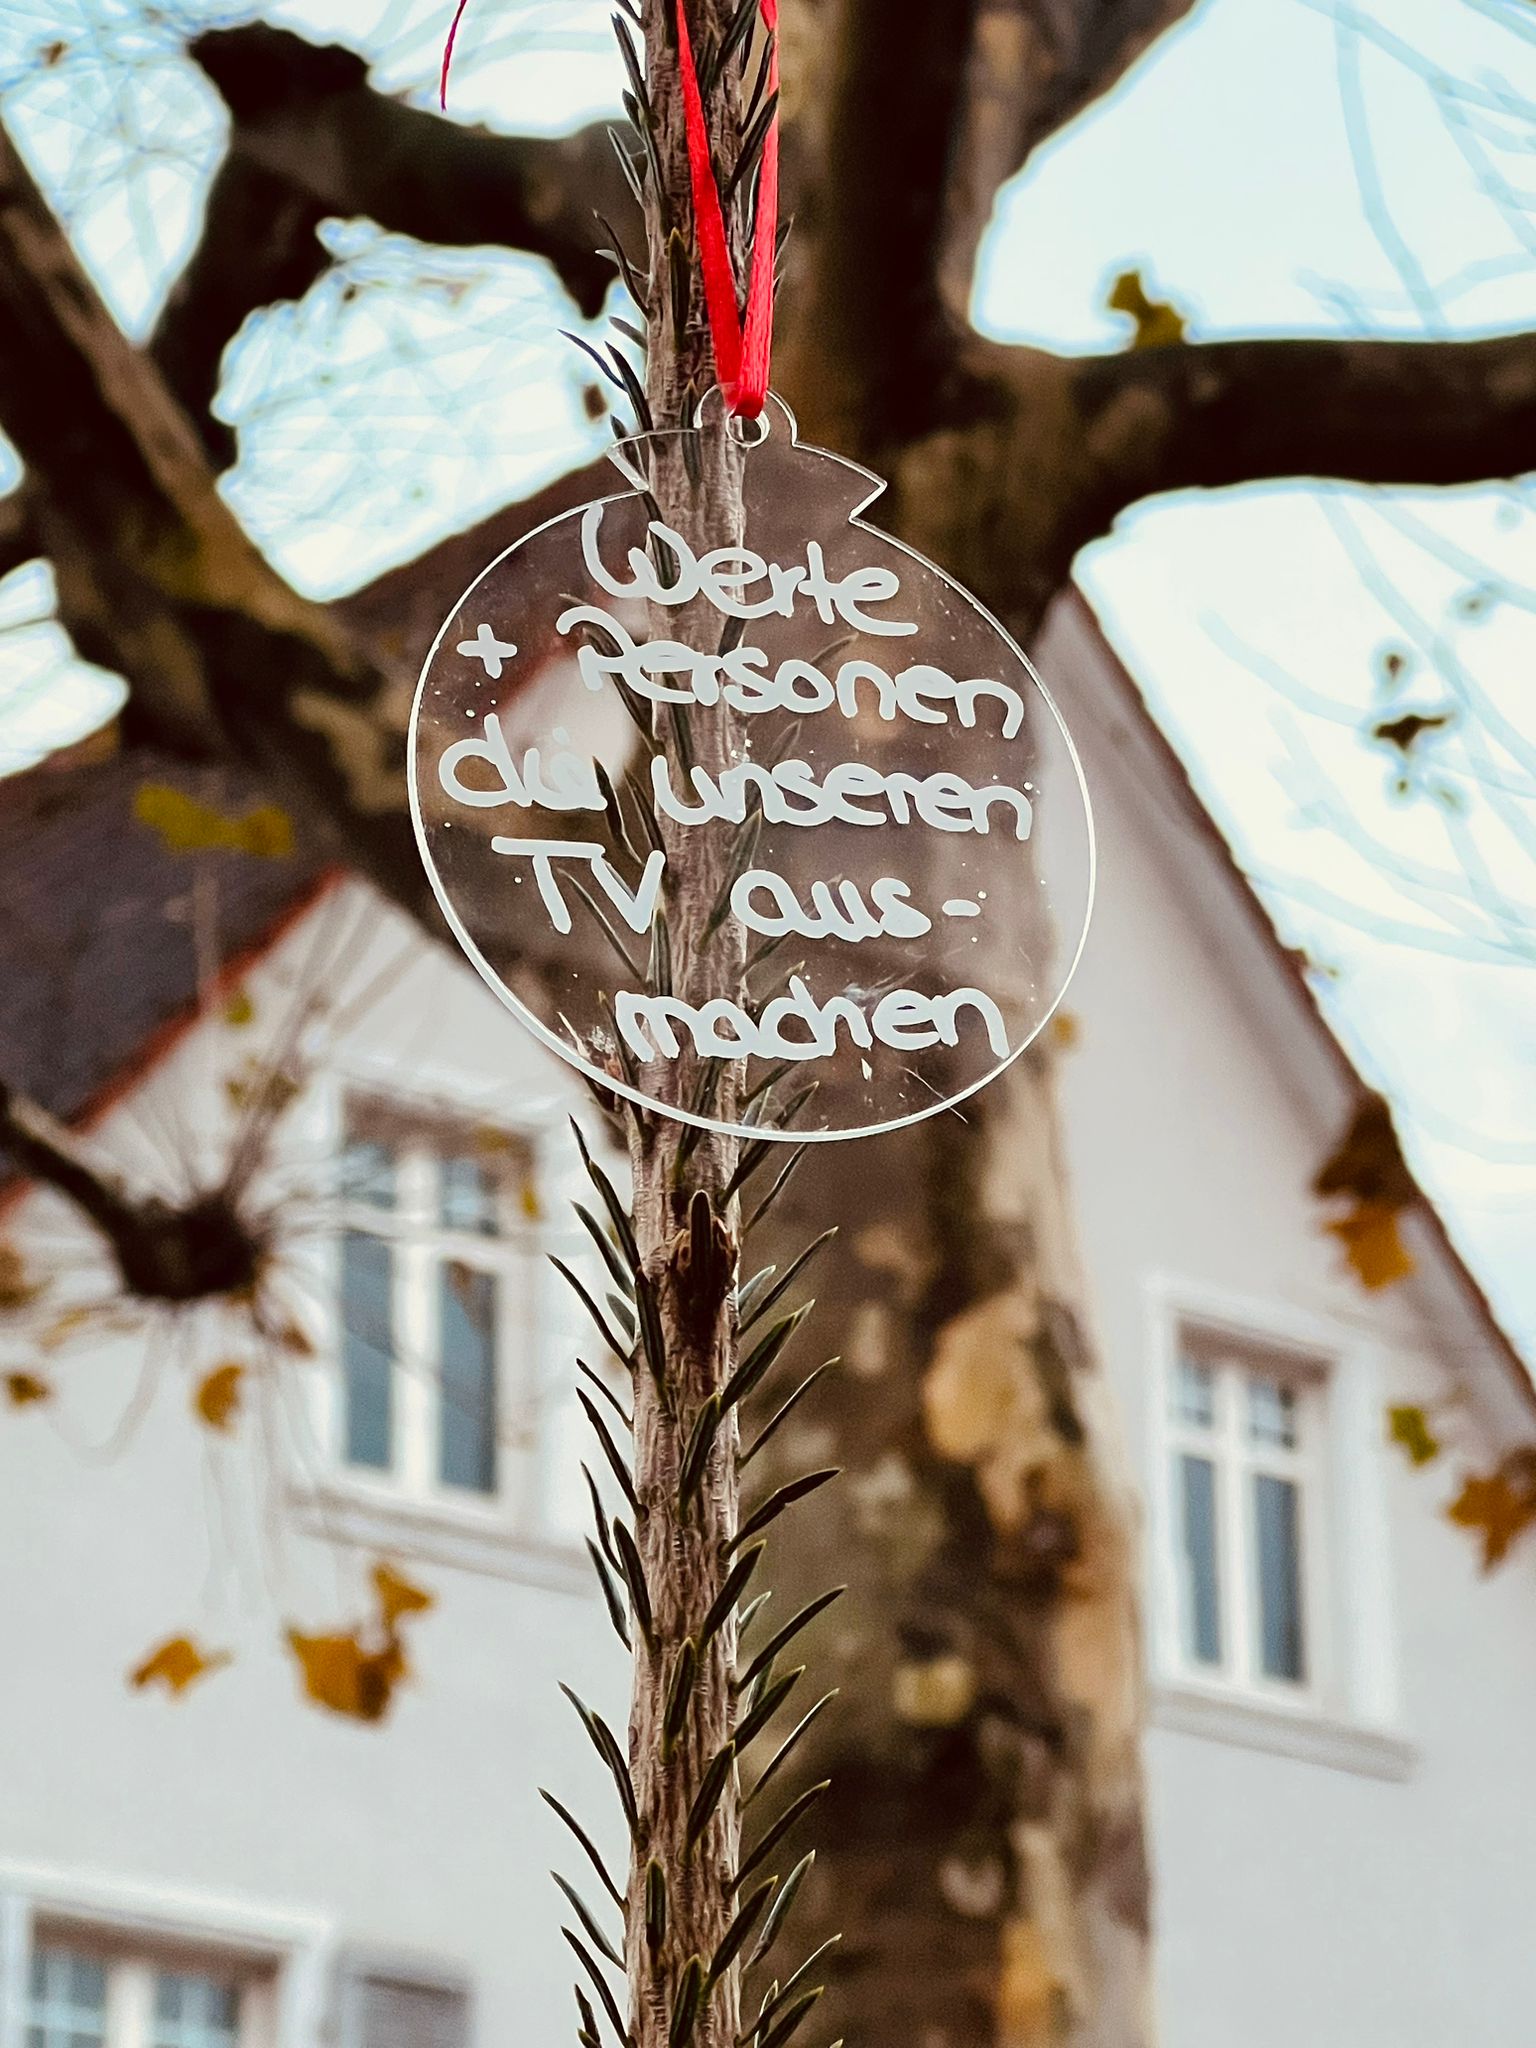 Werte
+ Personen
die unseren
TV aus-
machen